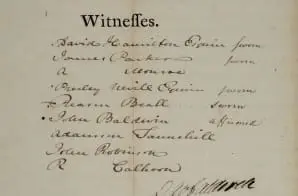 Witneſſes.
David Hamilton Erwin sworn
James Parker sworn
A Monroe
Presley Nevill Erwin sworn
Brown Beall sworn
John Baldwin affirmed
Adamson Tannehill
John Robinson
R Calhoon